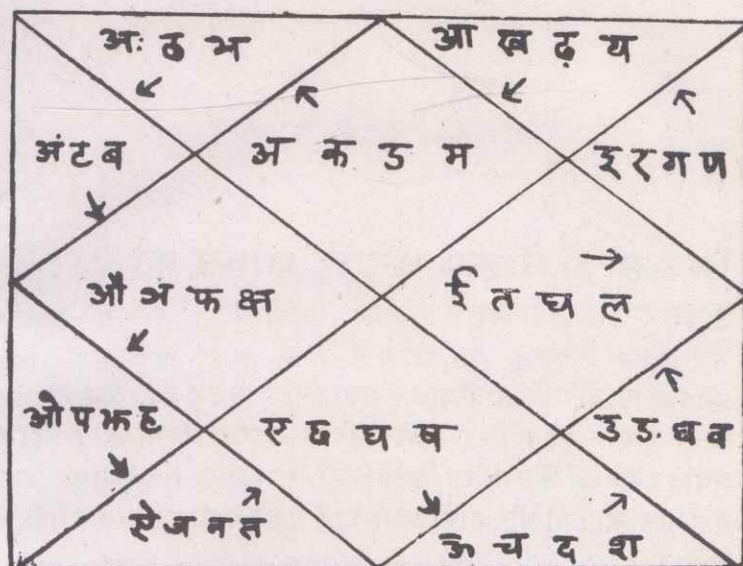 अः ठ भ
आ ख ढ़ य
अं ट ब
अ क ड म
इ र ग ण
औ ञ फ क्ष
ई त घ ल
ओ प झ ह
ए छ घ ष
उ ड. ध व
ऐ ज न स
ऊ च द श